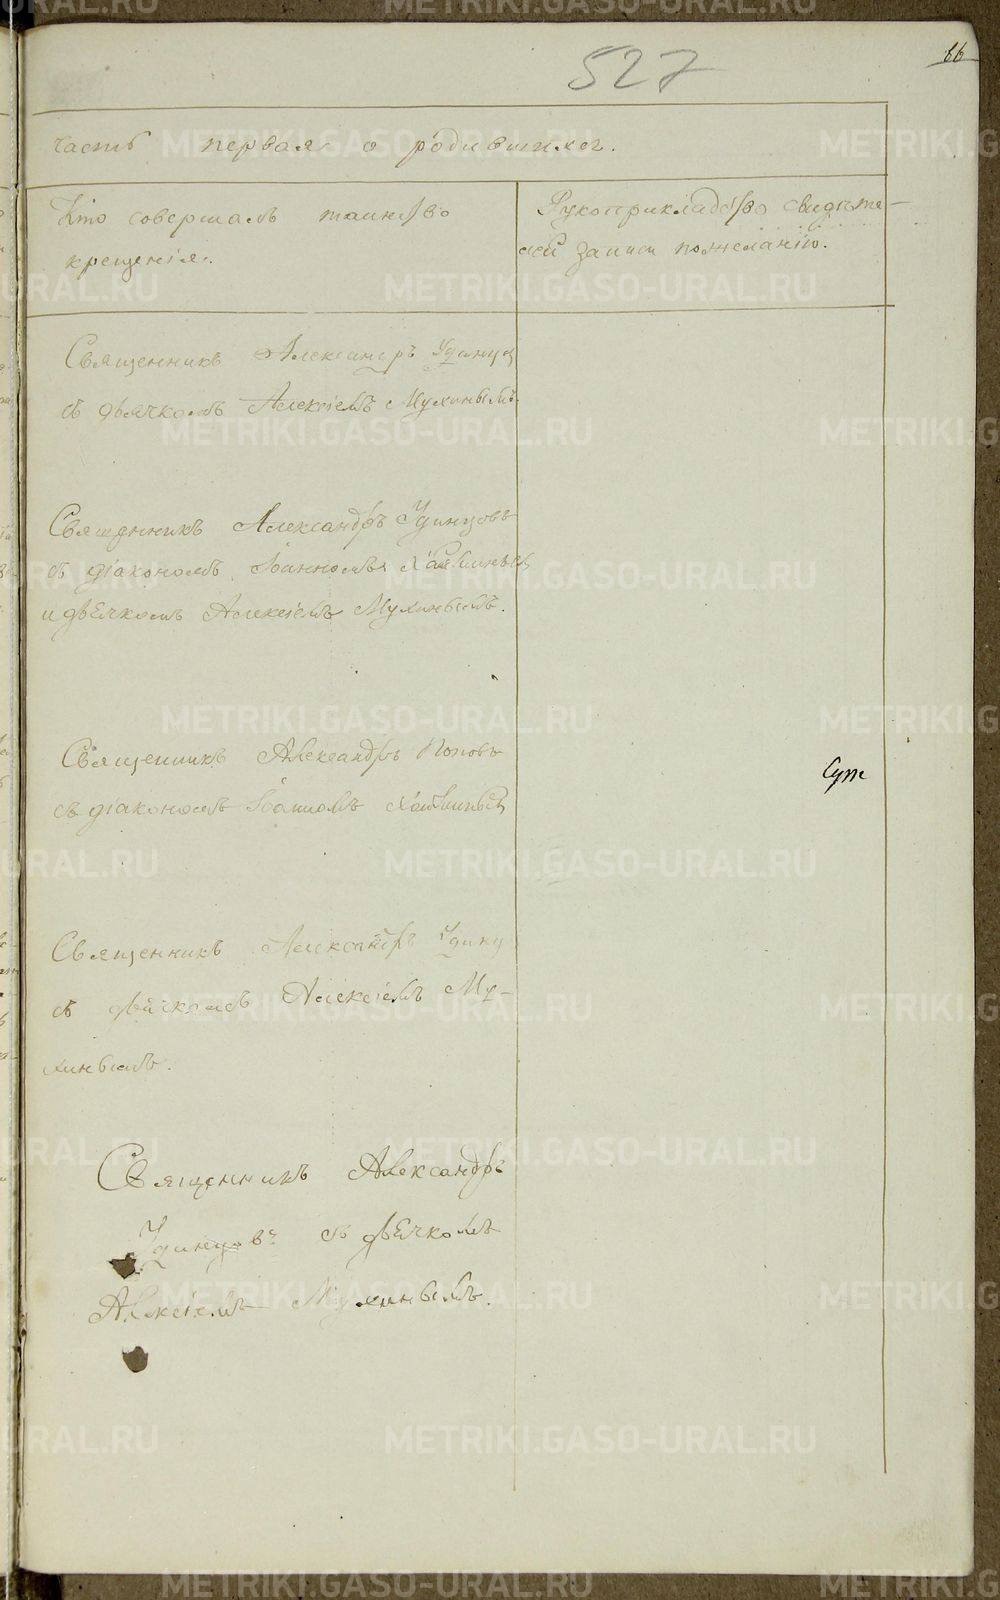 527
66
часть первая о родившихся.
Кто совершалъ таинство
крещенія.
Рукоприкладство свидѣте-
лей записи по желанію.
Священникъ Александръ Удинцо
съ дьячкомъ Алексіемъ Мухинымъ
Священникъ Александръ Удинцовъ
съ діакономъ Іоанномъ
и дьячкомъ Алексіемъ Мухинымъ.
Священникъ Александръ Поповъ
съ діакономъ Іоанномъ
Священникъ Александръ Удинц
съ дьячкомъ Алексіемъ Му-
хинымъ.
Священникъ Александръ
Удинцовъ съ дьячкомъ
Алексіемъ Мухинымъ.
METRIKI.GASO-URAL.RU